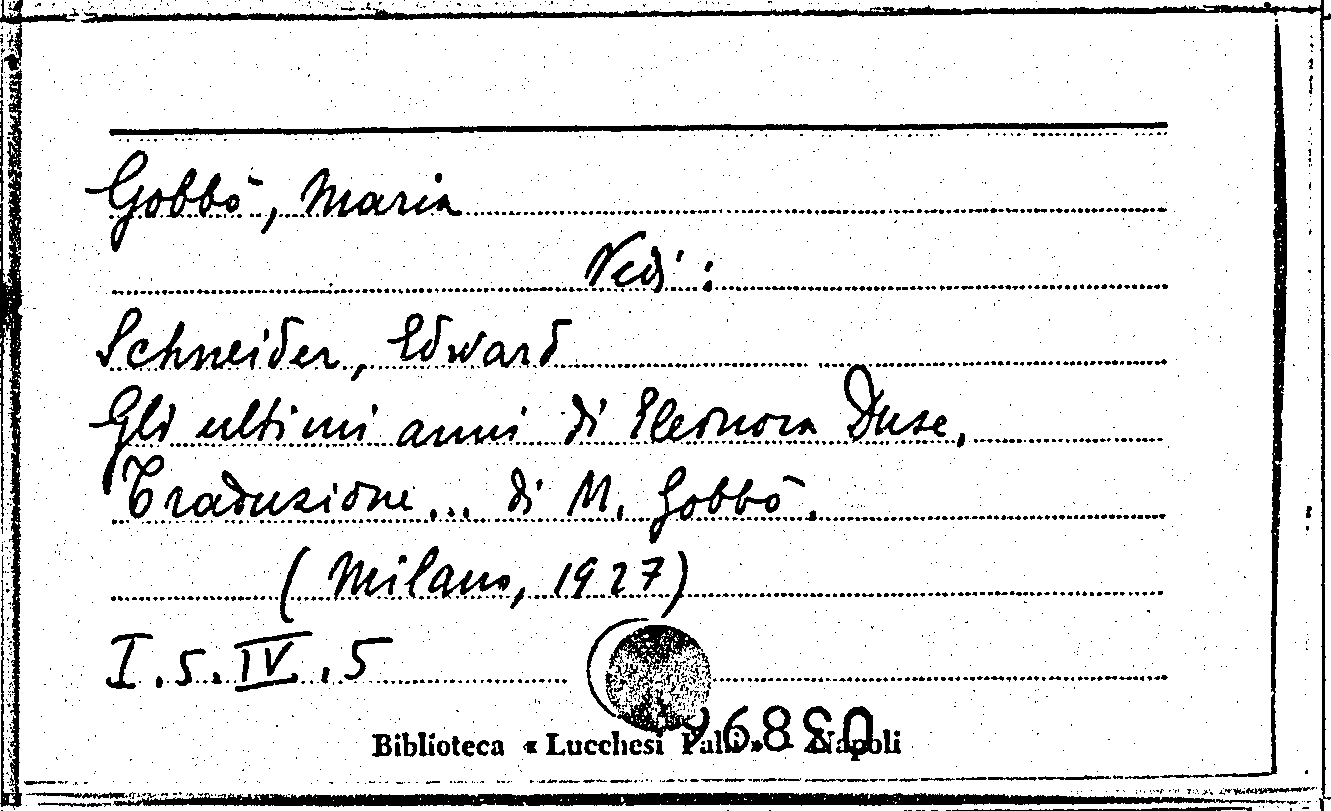 Gobbò, Maria
Vedi:
Schneider, Edward
Gli ultimi anni di Eleonora Duse,
Traduzione... di M. Gobbò.
(Milano, 1927)
I.5.IV.5
Biblioteca « Lucchesi Palli » - Napoli